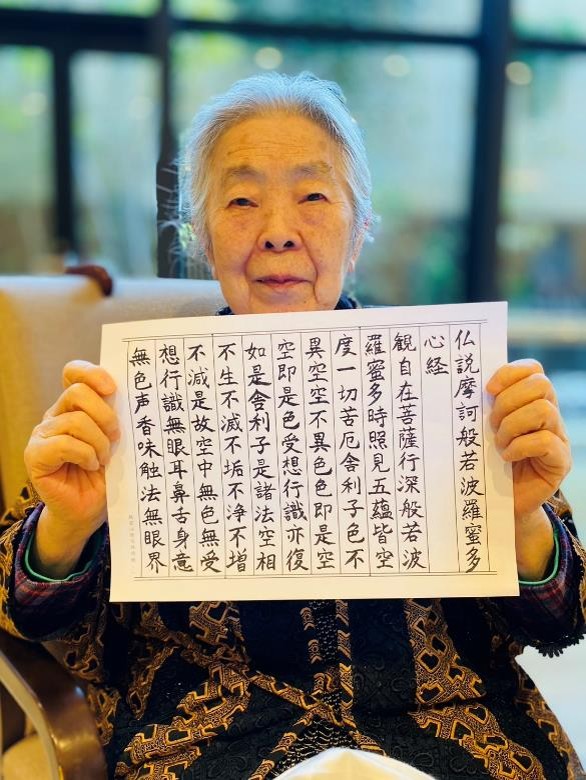 仏説摩訶般若波羅蜜多
心経
観自在菩薩行深般若波
羅蜜多時照見五蘊皆空
度一切苦厄舎利子色不
異空空不異色色即是空
空即是色受想行識亦復
如是舎利子是諸法空相
不生不滅不垢不浄不増
不減是故空中無色無受
想行識無眼耳鼻舌身意
無色声香味触法無眼界